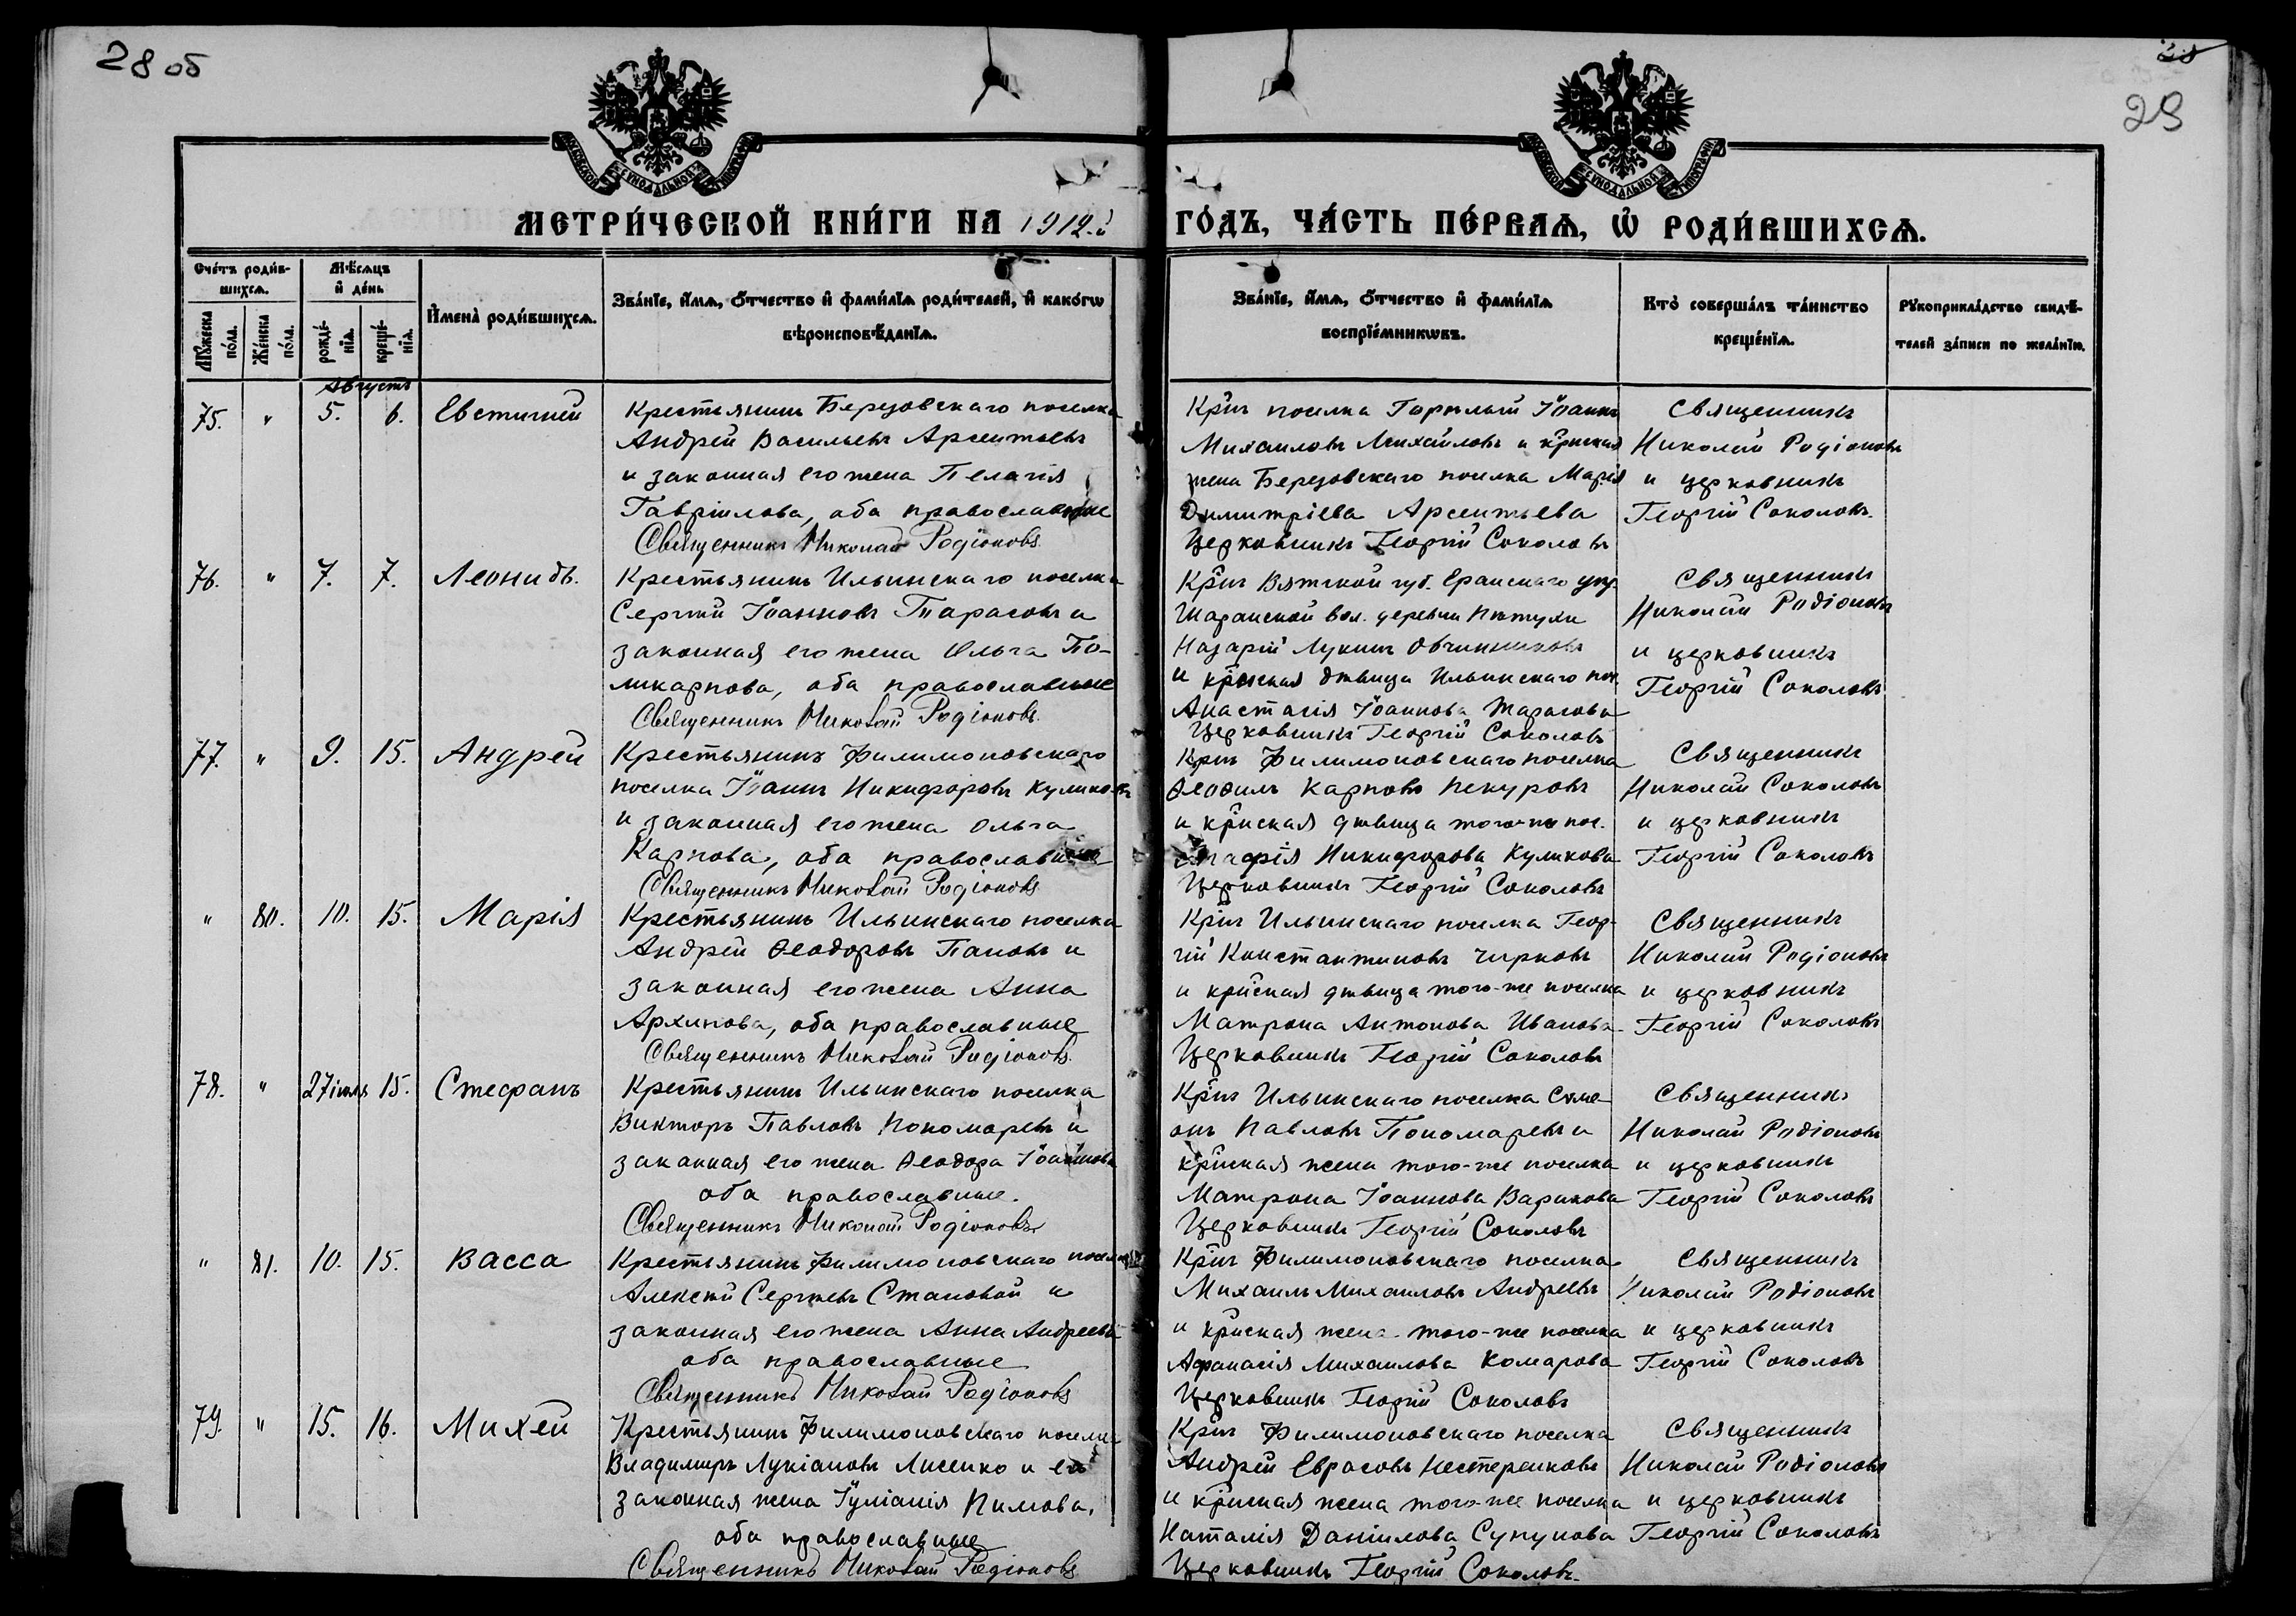 28 об
28
29
МЕТРИ́ЧЕСКОЙ КНИ́ГИ НА 1912 г.
ГО́ДЪ, ЧА́СТЬ ПЕ́РВАѦ, Ѡ РОДИ́ВШИХСѦ.
Сче́тъ роди́в-
шихсѧ.
Мꙋ́жеска по́ла.
Же́нска по́ла.
Мѣ́сѧцъ
и де́нь
рожде́-
нїѧ.
креще́-
нїѧ.
И҆мена̀ роди́вшихсѧ.
Зва́нїе, и҆́мѧ, ѻ҆́тчество и҆ фами́лїѧ роди́телей, и҆ како́гѡ
вѣроисповѣ́данїѧ.
Зва́нїе, и҆́мѧ, ѻ҆́тчество и҆ фами́лїѧ
воспрїе́мникѡвъ.
Кто̀ соверша́лъ та́инство
креще́нїѧ.
Рꙋкоприкла́дство свидѣ́-
телей за́писи по жела́нїю.
Августъ
75. " 5. 6. Евстигней
Крестьянинъ Березовскаго поселка
Андрей Васильевъ Арсентьевъ
и законная его жена Пелагія
Гавріилова, оба православные
Священникъ Николай Родіоновъ
Кр̃нъ поселка Горѣлый Іоаннъ
Михаиловъ Михайловъ и кр̃нская
жена Березовскаго поселка Марія
Димитріева Арсентьева
Церковникъ Георгій Соколовъ
Священникъ
Николай Родіоновъ
и церковникъ
Георгій Соколовъ.
76. " 7. 7. Леонидъ.
Крестьянинъ Ильинскаго поселка
Сергій Іоанновъ Тарасовъ и
законная его жена Ольга По-
ликарпова, оба православные
Священникъ Николай Родіоновъ.
Кр̃нъ Вятской губ. Еранскаго уѣз.
Шаранской вол. деревни Пѣтухи
Назарій Лукинъ Овчинниковъ
и кр̃нская дѣвица Ильинскаго пос.
Анастасія Іоаннова Тарасова
Церковникъ Георгій Соколовъ
Священникъ
Николай Родіоновъ
и церковникъ
Георгій Соколовъ
77. " 9. 15. Андрей
Крестьянинъ Филимоновскаго
поселка Іоаннъ Никифоровъ Куликовъ
и законная его жена Ольга
Карпова, оба православные
Священникъ Николай Родіоновъ
Кр̃нъ Филимоновскаго поселка
Ѳеофилъ Карповъ Пекуровъ
и кр̃нская дѣвица того-же пос.
Агафія Никифорова Куликова
Церковникъ Георгій Соколовъ
Священникъ
Николай Соколовъ
и церковникъ
Георгій Соколовъ
" 80. 10. 15. Марія
Крестьянинъ Ильинскаго поселка
Андрей Ѳеодоровъ Пановъ и
законная его жена Анна
Архипова, оба православные
Священникъ Николай Родіоновъ.
Кр̃нъ Ильинскаго поселка Геор-
гій Константиновъ Чирковъ
и кр̃нская дѣвица того-же поселка
Матрона Антонова Иванова
Церковникъ Георгій Соколовъ
Священникъ
Николай Родіоновъ
и церковникъ
Георгій Соколовъ
78. " 27 іюля 15. Стефанъ
Крестьянинъ Ильинскаго поселка
Викторъ Павловъ Пономаревъ и
законная его жена Ѳеодора Іоаннова
оба православные.
Священникъ Николай Родіоновъ
Кр̃нъ Ильинскаго поселка Симе-
онъ Павловъ Пономаревъ и
кр̃нская жена того-же поселка
Матрона Іоаннова Варикова
Церковникъ Георгій Соколовъ
Священникъ
Николай Родіоновъ
и церковникъ
Георгій Соколовъ
" 81. 10. 15. Васса
Крестьянинъ Филимоновскаго поселка
Алексѣй Сергѣевъ Становой и
законная его жена Анна Андреева
оба православные
Священникъ Николай Родіоновъ
Кр̃нъ Филимоновскаго поселка
Михаилъ Михаиловъ Андреевъ
и кр̃нская жена того-же поселка
Афанасія Михаилова Комарова
Церковникъ Георгій Соколовъ
Священникъ
Николай Родіоновъ
и церковникъ
Георгій Соколовъ
79. " 15. 16. Михей
Крестьянинъ Филимоновскаго поселка
Владимиръ Лукіановъ Лисенко и его
законная жена Іуліанія Пимова,
оба православные
Священникъ Николай Родіоновъ
Кр̃нъ Филимоновскаго поселка
Андрей Евфасовъ Нестеренковъ
и кр̃нская жена того-же поселка
Наталія Даніилова Супунова
Церковникъ Георгій Соколовъ.
Священникъ
Николай Родіоновъ
и церковникъ
Георгій Соколовъ